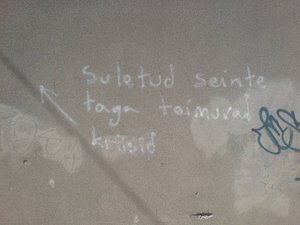 Suletud seinte
taga toimuvad
kriisid